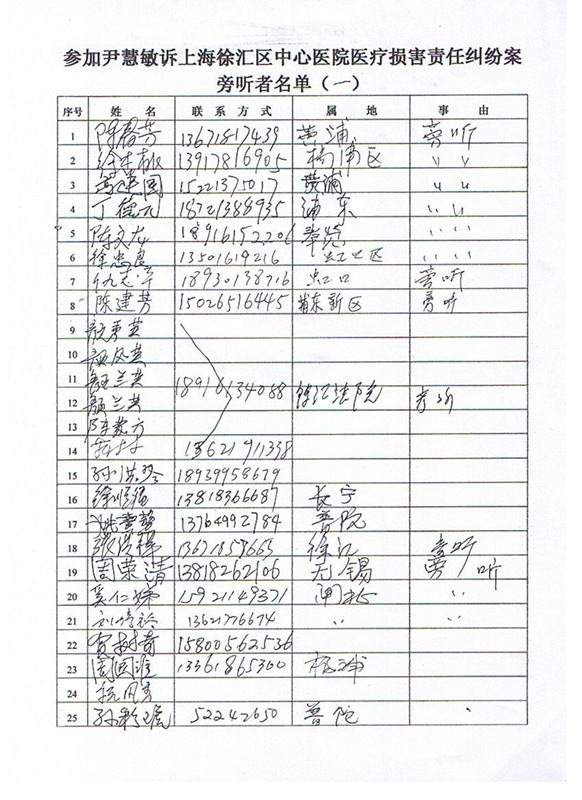 参加尹慧敏诉上海徐汇区中心医院医疗损害责任纠纷案
旁听者名单（一）
序号 姓 名 联 系 方 式 属 地 事 由
1 陈 芳 13671817439 黄浦 旁听
2 13917816905 杨浦区 〃 〃
3 国 15221375017 黄浦 〃 〃
4 丁德元 18721388935 浦东 〃 〃
5 陈文龙 18916152206 普陀 〃 〃
6 徐忠良 13501619216 虹口区 〃 〃
7 仇志 18930138716 虹口 旁听
8 陈建芳 15026516445 浦东新区 旁听
9 英
10 顾凤英
11 顾兰英 18916134088 徐汇法院 旁听
12 顾兰英
13 方
14 13621911338
15 孙洪 18939958679
16 徐顺 13818366687 长宁
17 姚 13764992784 普陀
18 张 13671859663 徐汇 旁听
19 周荣清 13818262106 无锡 旁听
20 吴仁娣 15921149371 闸北 〃
21 刘 13621776674 〃 〃
22 贺树奇 15800562536
23 周国 13361865300 杨浦
24
25 孙 52242650 普陀 〃